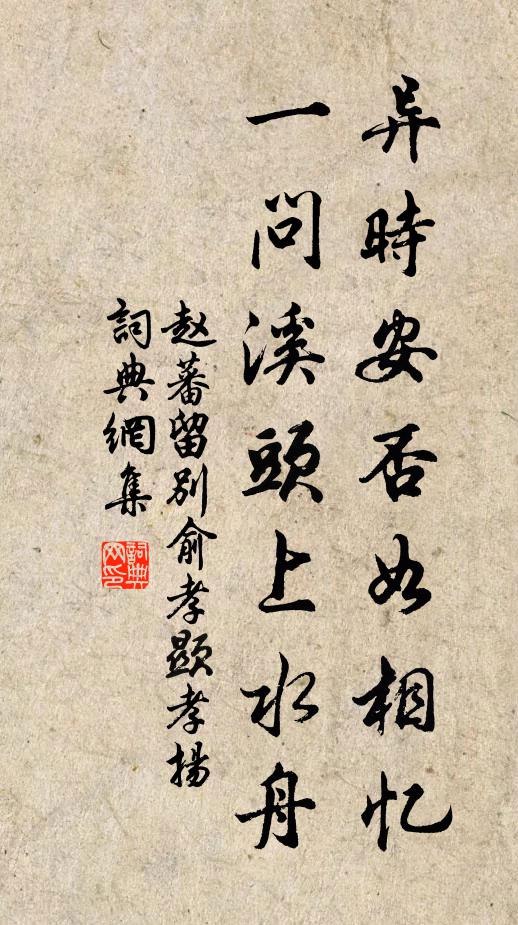 异時安否如相忆
一问溪頭上水舟
赵蕃留别俞孝顕孝揚
詞典網集
詞典
网印